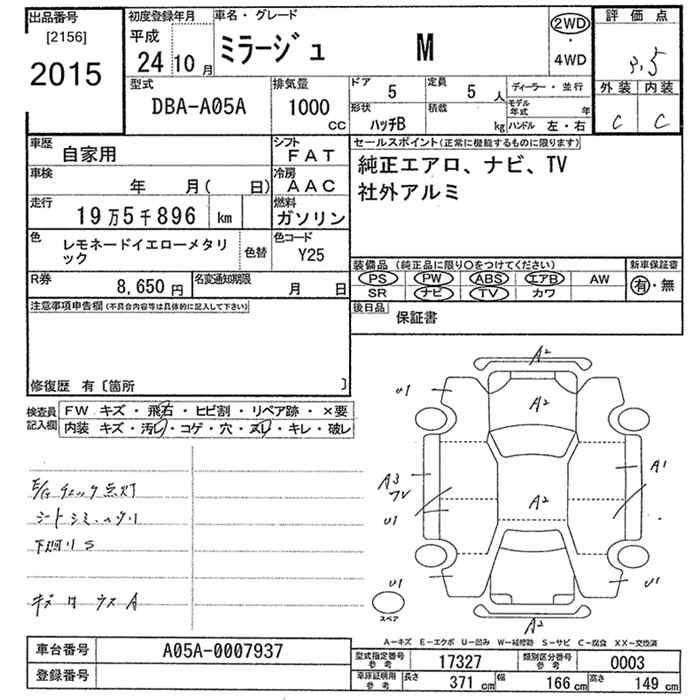 出品番号
[2156]
2015
初度登録年月
平成
24年10月
車名・グレード
ミラージュ M
2WD
・
4WD
評価点
3.5
外装 内装
C C
型式
DBA-A05A
排気量
1000
CC
ドア
5
定員
5人
形状
ハッチB
積載
kg
ディーラー・並行
モデル年式 年
ハンドル 左・右
車歴
自家用
シフト
FAT
車検
年 月( 日)
冷房
AAC
走行
19万5千896 km
燃料
ガソリン
色
レモネードイエローメタリック
色替
色コード
Y25
R券
8,650円
名変通知期限
月 日
セールスポイント(正常に機能するものに限ります)
純正エアロ、ナビ、TV
社外アルミ
装備品(純正品に限り○をつけてください)
PS PW ABS エアB AW
SR ナビ TV カワ
新車保証書
有・無
後日品
保証書
注意事項申告欄(不具合内容等は具体的に記入して下さい)
修復歴 有〔箇所 〕
検査員記入欄
FW キズ・飛石・ヒビ割・リペア跡・×要
内装 キズ・汚レ・コゲ・穴・スレ・キレ・破レ
E/Gチェック点灯
シートシミ
下廻りS
キズ
A
A2
U1
A2
A3
A1
U1
A2
U1
U1
A2
スペア
A-キズ E-エクボ U-凹み W-補修跡 S-サビ C-腐食 XX-交換済
車台番号
A05A-0007937
登録番号
型式指定番号
参考
17327
類別区分番号
参考
0003
車庫証明用
参考
長さ 371 cm 幅 166 cm 高さ 149 cm